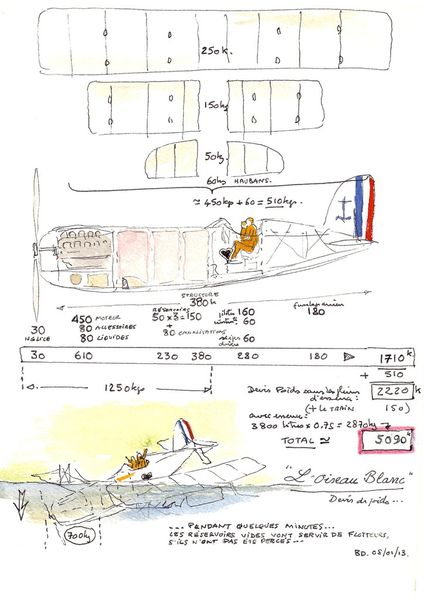 250k.
150kg
50kg.
60kg HAUBANS.
≃ 450kgs + 60 = 510kgs.
STRUCTURE
380k
fuselage arrière
180
RÉSERVOIRS
50 x 3 = 150
+
80 CANALISATIONS
pilotes 160
60
sièges 60
divers
450 MOTEUR
80 ACCESSOIRES
80 LIQUIDES
30
HELICE
30 610 230 380 280 180 1710k
+ 510
1250kgs
Devis Poids sans les pleins
d'essence:
2220k
(+ LE TRAIN 150)
avec essence:
3800 litres x 0.75 = 2870kg
TOTAL ≃ 5090k
"L'Oiseau Blanc"
Devis de poids...
700kg
... PENDANT QUELQUES MINUTES...
LES RÉSERVOIRS VIDES VONT SERVIR DE FLOTTEURS,
S'ILS N'ONT PAS ÉTÉ PERCÉS...
BD. 08/01/13.